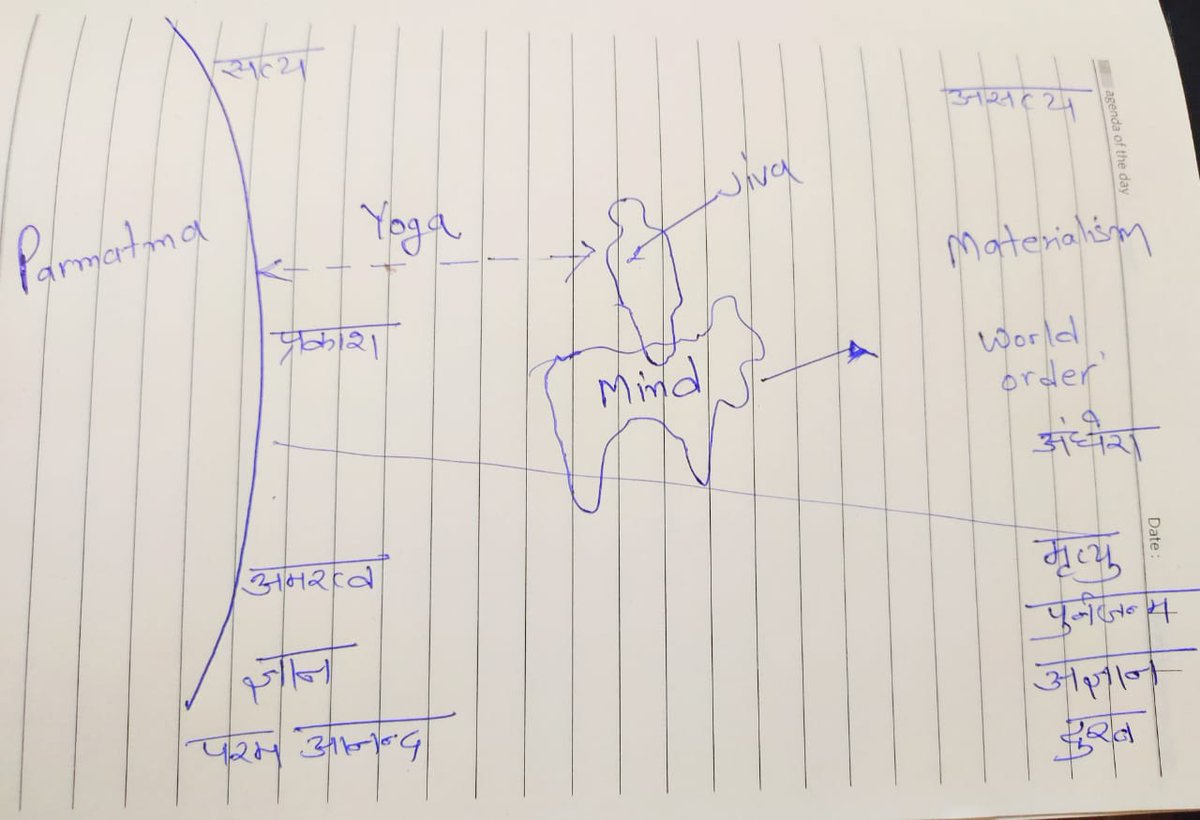 सत्य
Parmatma
Yoga
प्रकाश
अमरत्व
ज्ञान
परम आनन्द
Jiva
Mind
असत्य
Materialism
World
order
अंधेरा
मृत्यु
पुर्नजन्म
अज्ञान
दुख
agenda of the day
Date :